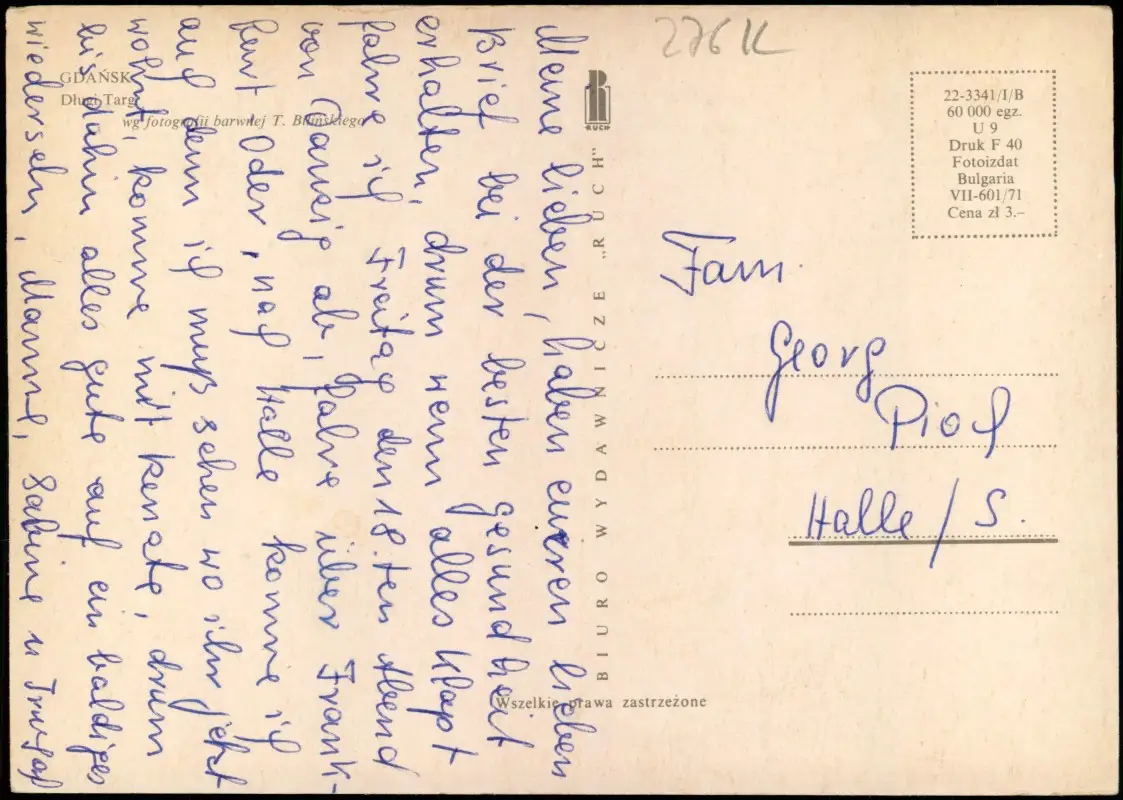 276 K
GDAŃSK
Długi Targ
wg fotografii barwnej T. Bilińskiego
RUCH
BIURO WYDAWNICZE „RUCH"
22-3341/I/B
60 000 egz.
U 9
Druk F 40
Fotoizdat
Bulgaria
VII-601/71
Cena zł 3.–
Meine lieben, haben euren lieben
Brief bei der besten gesundheit
erhalten, drum wenn alles klapt
fahre ich Freitag den 18.ten Abend
von Danzig ab, fahre über Frank-
furt Oder, nach Halle komme ich
auch denn ich muß sehen wo ihr jetzt
wohnt, komme mit Renate, drum
bis dahin alles gute auf ein baldiges
wiedersehn, Manne, Sabine u
Fam.
Georg
Halle / S.
Wszelkie prawa zastrzeżone